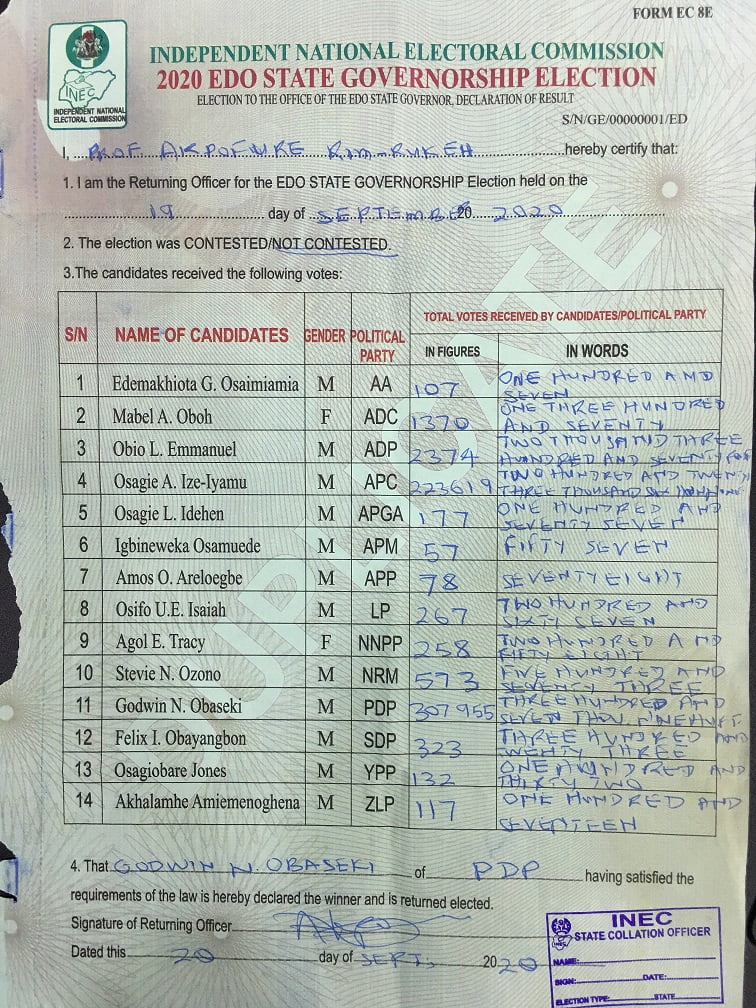 FORM EC 8E
INEC
INDEPENDENT NATIONAL
ELECTORAL COMMISSION
INDEPENDENT NATIONAL ELECTORAL COMMISSION
2020 EDO STATE GOVERNORSHIP ELECTION
ELECTION TO THE OFFICE OF THE EDO STATE GOVERNOR, DECLARATION OF RESULT
S/N/GE/00000001/ED
DUPLICATE
I, PROF AKPOFURE RIM-RUKEH hereby certify that:
1. I am the Returning Officer for the EDO STATE GOVERNORSHIP Election held on the
19 day of SEPTEMBER 20 2020
2. The election was CONTESTED/NOT CONTESTED.
3.The candidates received the following votes:
S/N NAME OF CANDIDATES GENDER POLITICAL PARTY TOTAL VOTES RECEIVED BY CANDIDATES/POLITICAL PARTY
IN FIGURES IN WORDS
1 Edemakhiota G. Osaimiamia M AA 107 ONE HUNDRED AND SEVEN
2 Mabel A. Oboh F ADC 1370 ONE THREE HUNDRED AND SEVENTY
3 Obio L. Emmanuel M ADP 2374 TWO THOUSAND THREE HUNDRED AND SEVENTY
4 Osagie A. Ize-Iyamu M APC 223619 TWO HUNDRED AND TWENTY THREE THOUSAND SIX
5 Osagie L. Idehen M APGA 177 ONE HUNDRED AND SEVENTY SEVEN
6 Igbineweka Osamuede M APM 57 FIFTY SEVEN
7 Amos O. Areloegbe M APP 78 SEVENTY EIGHT
8 Osifo U.E. Isaiah M LP 267 TWO HUNDRED AND SIXTY SEVEN
9 Agol E. Tracy F NNPP 258 TWO HUNDRED AND FIFTY EIGHT
10 Stevie N. Ozono M NRM 573 FIVE HUNDRED AND SEVENTY THREE
11 Godwin N. Obaseki M PDP 307955 THREE HUNDRED AND SEVEN THOU
12 Felix I. Obayangbon M SDP 323 THREE HUNDRED AND TWENTY THREE
13 Osagiobare Jones M YPP 132 ONE HUNDRED AND THIRTY TWO
14 Akhalamhe Amiemenoghena M ZLP 117 ONE HUNDRED AND SEVENTEEN
4. That GODWIN N. OBASEKI of PDP having satisfied the
requirements of the law is hereby declared the winner and is returned elected.
Signature of Returning Officer
Dated this 20 day of SEPT, 20 20
INEC
STATE COLLATION OFFICER
NAME:
SIGN: DATE:
ELECTION TYPE: STATE